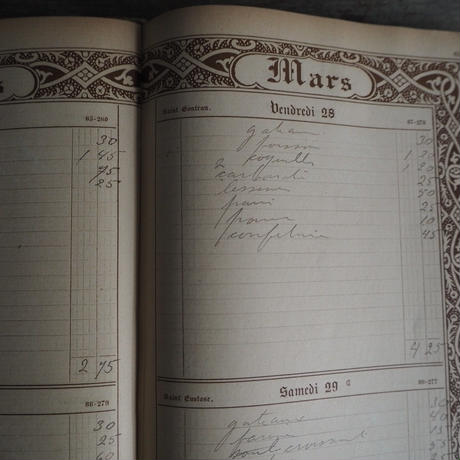 s
Mars
85-280
30
1 45
75
25
2 75
86-279
30
25
60
Saint Gontran. Vendredi 28 87-278
gateau 30
poisson 1 30
coquille 1 20
2 25
lessive 40
pain 25
10
confiture 45
4 25
Saint Eustase. Samedi 29 88-277
gateaux 30
farine 40
croissant 15